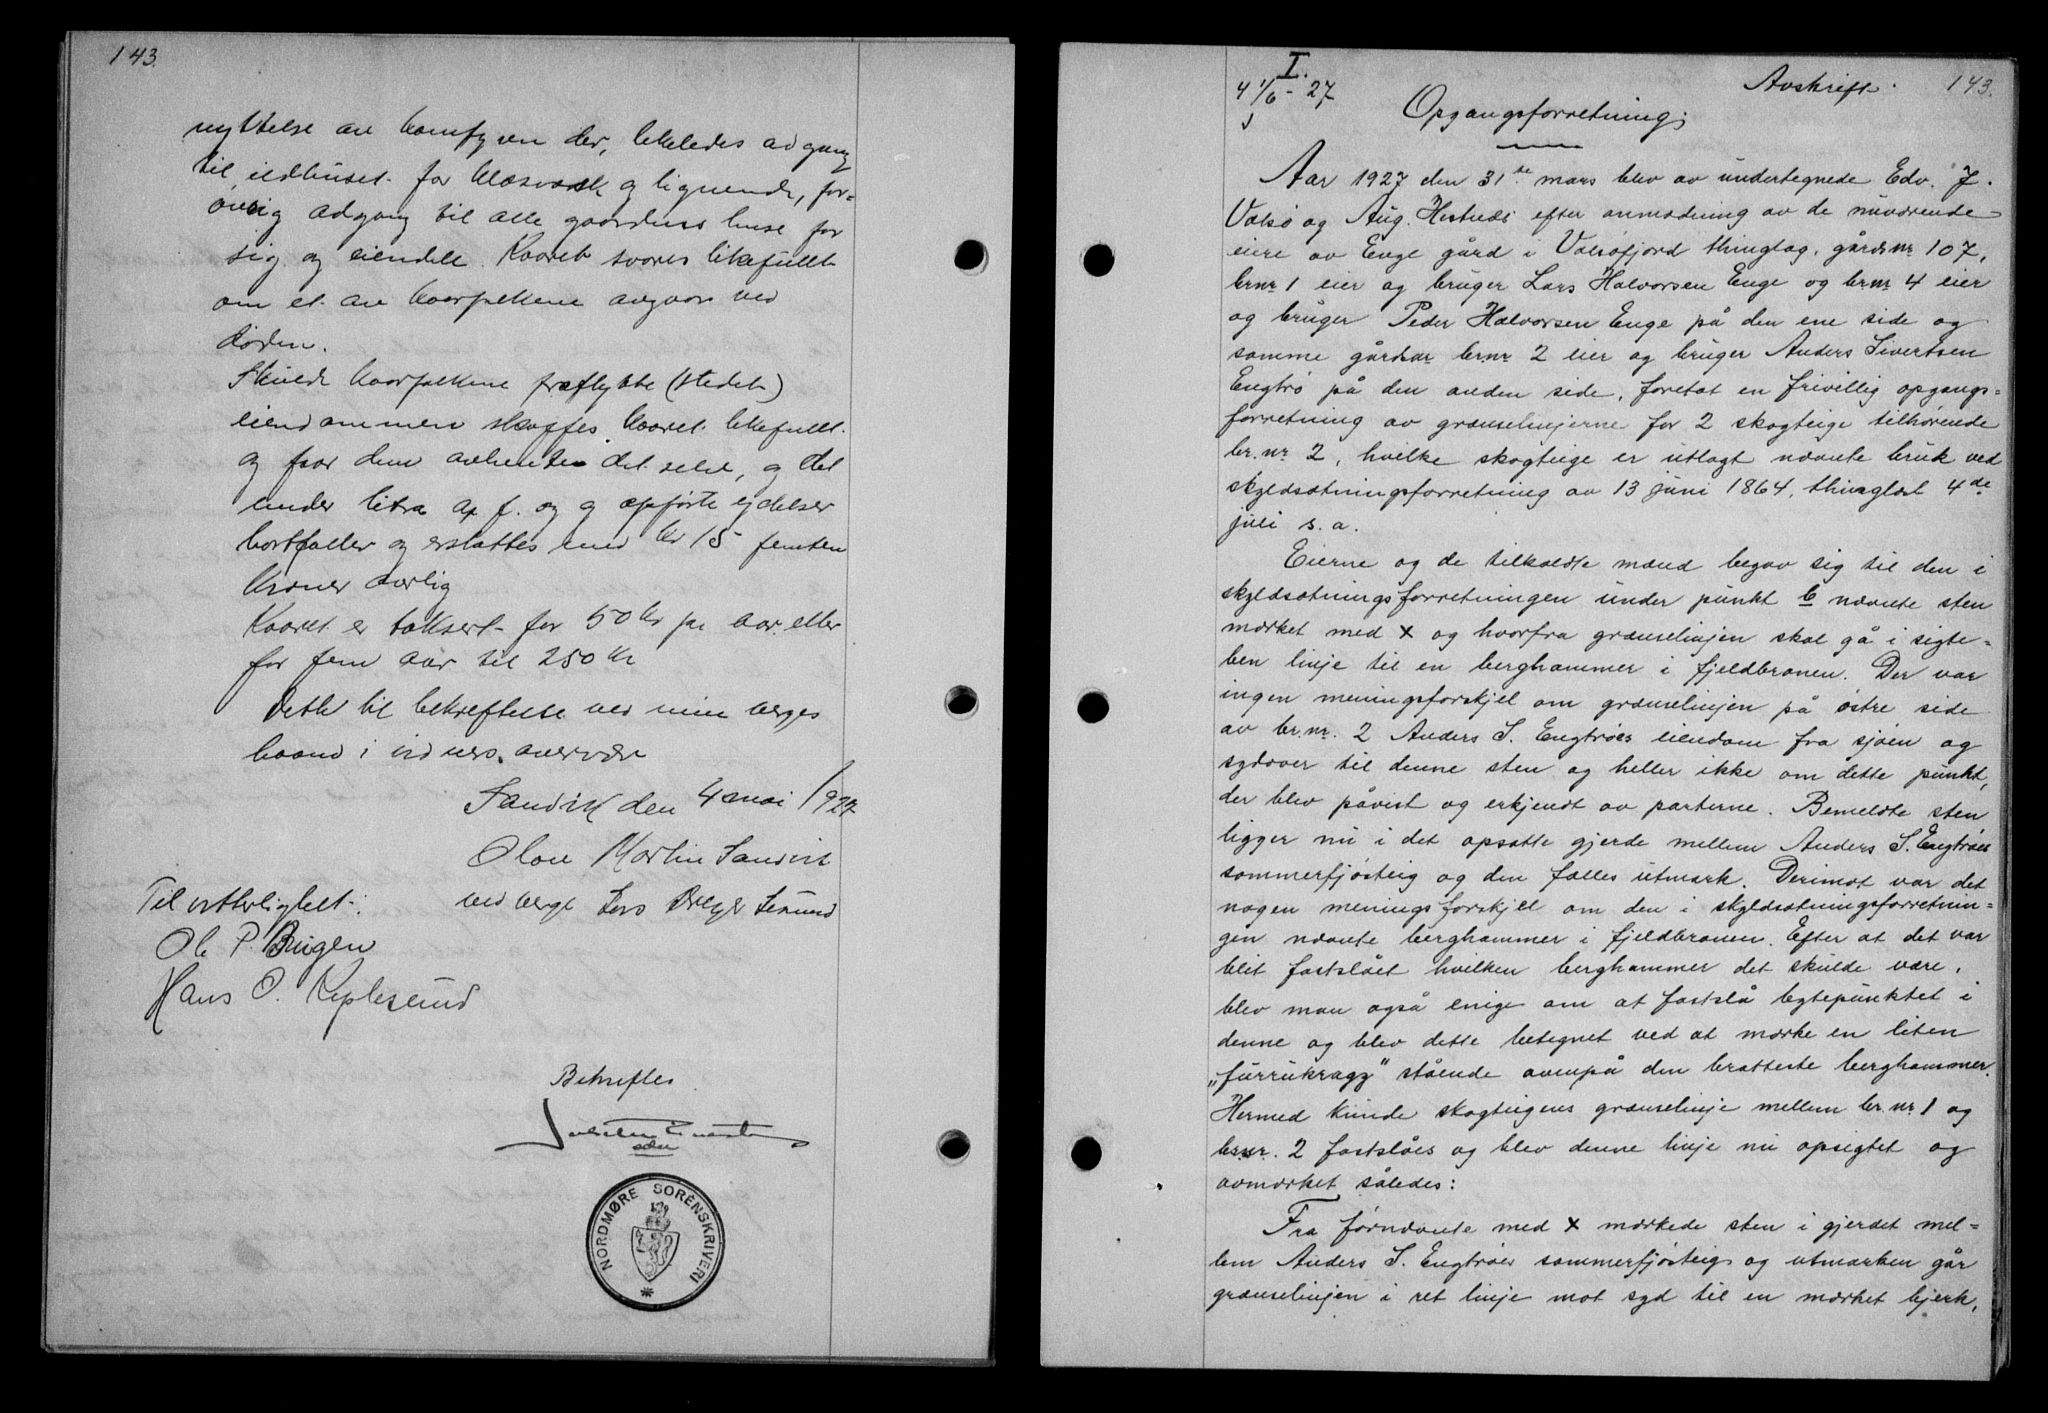 143.
nyttelse av komfyren der, likeledes adgang
til ildhuset for klæsvask og lignende, for=
øvrig adgang til alle gaardens huse for
sig og eiendele. Kaaret svares likefullt
om et av kaarfolkene avgaar ved
døden.
Skulde kaarfolkene fraflytte (stedet)
eiendommen skaffes kaaret likefullt
og faar dem avhente det selv, og det
under litra f. og g opførte ydelser
bortfaller og erstattes med kr 15 femten
kroner aarlig
Kaaret er taksert for 50 kr pr aar eller
for fem aar til 250 kr
Dette til bekreftelse ved min verges
haand i vidners overvær
Sandvik den 4 mai 1927
Olav Martin Sandvik
ved verge Lars
Til vitterlighet:
Ole P. Bugen
Hans O.
Bekreftes
NORDMØRE SORENSKRIVERI
I.
4 1/6 - 27
Avskrift. 143.
Opgangsforretning;
Aar 1927 den 31te mars blev av undertegnede Edv. J.
Valsø og Aug. Hestnes efter anmodning av de nuværende
eiere av Enge gård i Valsøfjord thinglag, gårdsnr 107,
brnr 1 eier og bruger Lars Halvorsen Enge og brnr 4 eier
og bruger Peder Halvorsen Enge på den ene side og
samme gårdsnr brnr 2 eier og bruger Anders Sivertsen
Engtrø på den anden side, foretat en frivillig opgangs=
forretning av grænselinjerne for 2 skogteige tilhørende
br. nr 2, hvilke skogteige er utlagt nævnte bruk ved
skyldsætningsforretning av 13 juni 1864, thinglæst 4de
juli s. a.
Eierne og de tilkaldte mænd begav sig til den i
skyldsætningsforretningen under punkt b nævnte sten
mærket med x og hvorfra grænselinjen skal gå i sigte=
ben linje til en berghammer i fjeldbranen. Der var
ingen meningsforskjel om grænselinjen på østre side
av br. nr. 2 Anders S. Engtrøes eiendom fra sjøen og
sydover til denne sten og heller ikke om dette punkt,
der blev påvist og erkjendt av parterne. Bemeldte sten
ligger nu i det opsatte gjerde mellem Anders S. Engtrøes
sommerfjøsteig og den fælles utmark. Derimot var det
nogen meningsforskjel om den i skyldsætningsforretnin=
gen nævnte berghammer i fjeldbranen. Efter at det var
blit fastslået hvilken berghammer det skulde være,
blev man også enige om at fastslå bytepunktet i
denne og blev dette betegnet ved at mærke en liten
„furukragg" stående ovenpå den bratteste berghammer.
Hermed kunde skogteigens grænselinje mellem br. nr 1 og
br.nr. 2 fastslåes og blev denne linje nu opsigtet og
avmærket således:
Fra førnævnte med x mærkede sten i gjerdet mel=
lem Anders S. Engtrøes sommerfjøsteig og utmarken går
grænselinjen i ret linje mot syd til en mærket bjerk,